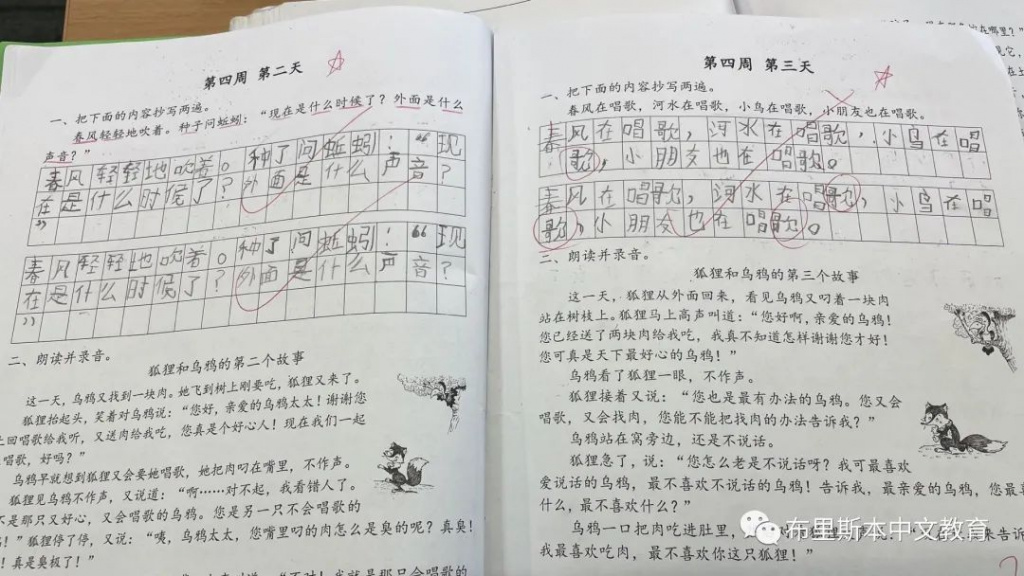 第四周 第二天
一、把下面的内容抄写两遍。
春风轻轻地吹着。种子问蚯蚓：“现在是什么时候了？外面是什么
声音？”
春风轻轻地吹着。种了问蚯蚓：“现
在是什么时候了？外面是什么声音？
”
春风轻轻地吹着。种了问蚯蚓：“现
在是什么时候了？外面是什么声音？
”
二、朗读并录音。
狐狸和乌鸦的第二个故事
这一天，乌鸦又找到一块肉。她飞到树上刚要吃，狐狸又来了。
狐狸抬起头，笑着对乌鸦说：“您好，亲爱的乌鸦太太！谢谢您
上回唱歌给我听，又送肉给我吃，您真是个好心人！现在我们一起
唱歌，好吗？”
乌鸦早就想到狐狸又会要她唱歌，她把肉叼在嘴里，不作声。
狐狸见乌鸦不作声，又说道：“啊……对不起，我看错人了。
不是那只又好心，又会唱歌的乌鸦。您是另一只不会唱歌的
！”狐狸停了停，又说：“咦，乌鸦太太，您嘴里叼的肉怎么是臭的呢？真臭！
！真是臭极了！”
第四周 第三天
一、把下面的内容抄写两遍。
春风在唱歌，河水在唱歌，小鸟在唱歌，小朋友也在唱歌。
春风在唱歌，河水在唱歌，小鸟在唱
歌，小朋友也在唱歌。
春风在唱歌，河水在唱歌，小鸟在唱
歌，小朋友也在唱歌。
二、朗读并录音。
狐狸和乌鸦的第三个故事
这一天，狐狸从外面回来，看见乌鸦又叼着一块肉
站在树枝上。狐狸马上高声叫道：“您好啊，亲爱的乌鸦！
您已经送了两块肉给我吃，我真不知道怎样谢谢您才好！
您可真是天下最好心的乌鸦！”
乌鸦看了狐狸一眼，不作声。
狐狸接着又说：“您也是最有办法的乌鸦。您又会
唱歌，又会找肉，您能不能把找肉的办法告诉我？”
乌鸦站在窝旁边，还是不说话。
狐狸急了，说：“您怎么老是不说话呀？我可最喜欢
爱说话的乌鸦，最不喜欢不说话的乌鸦！告诉我，最亲爱的乌鸦，您最喜
什么，最不喜欢什么？”
乌鸦一口把肉吃进肚里，来告诉
我最喜欢吃肉，最不喜欢你这只狐狸！”
布里斯本中文教育